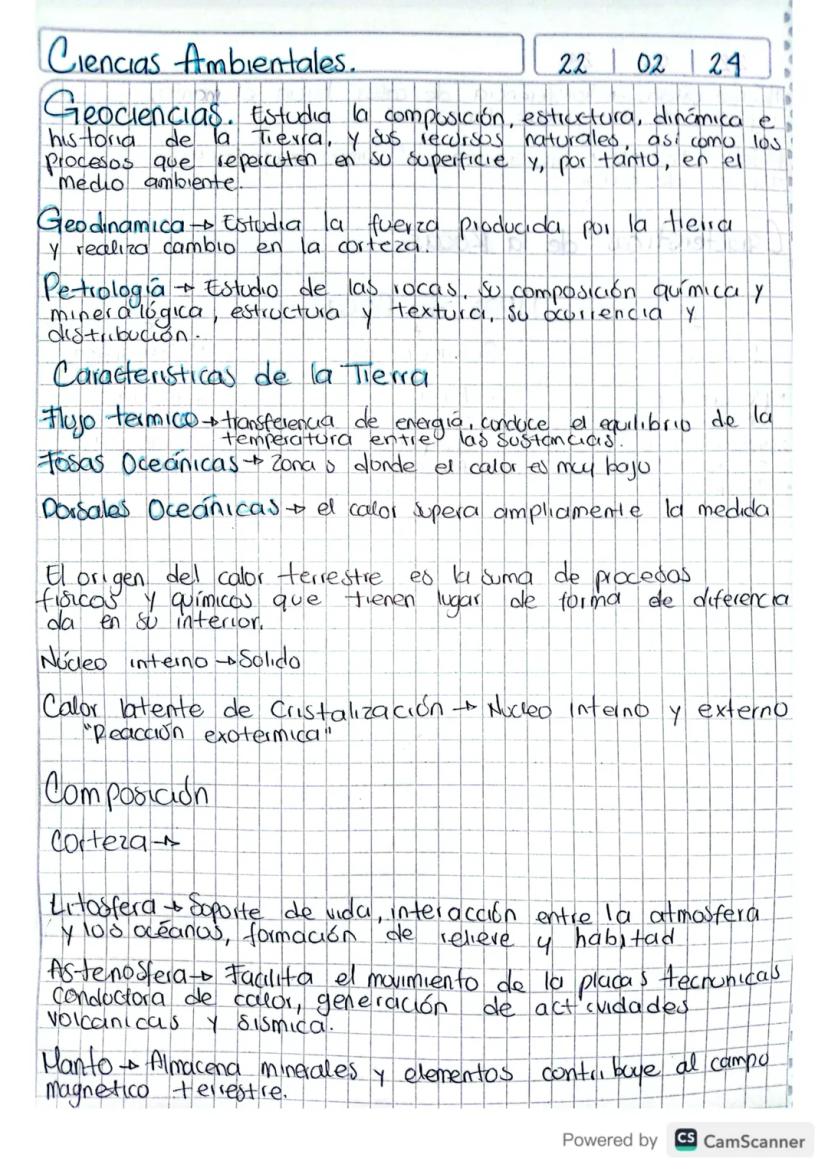 Ciencias Ambientales.
22 | 02 | 24
Geociencias. Estudia la composición, estructura, dinámica e
historia de la Tierra, y sus recursos naturales, así como los
procesos que repercuten en su superficie y, por tanto, en el
medio ambiente.
Geodinamica → Estudia la fuerza producida por la tierra
y realiza cambio en la corteza.
Petrología → Estudio de las rocas, su composición química y
mineralógica, estructura y textura, su ocurriencia y
distribución.
Caracteristicas de la Tierra
Flujo termico → transferencia de energía, conduce el equilibrio de la
temperatura entre las sustancias.
Fosas Oceánicas → Zonas donde el calor es muy bajo
Dorsales Oceánicas → el calor supera ampliamente la medida
El origen del calor terrestre es la suma de procesos
físicos y químicos que tienen lugar de forma de diferencia
da en su interior.
Núcleo interno → Solido
Calor latente de Cristalización → Nucleo Interno y externo
"Reacción exotermica"
Composición
Corteza →
Litosfera → Soporte de vida, interacción entre la atmosfera
y los océanos, formación de relieve y habitad
Astenosfera → Facilita el movimiento de la placas tecnonicas
conductora de calor, generación de actividades
volcanicas y sismica.
Manto → Almacena minerales y elementos contribuye al campo
magnetico terrestre.
Powered by CS CamScanner